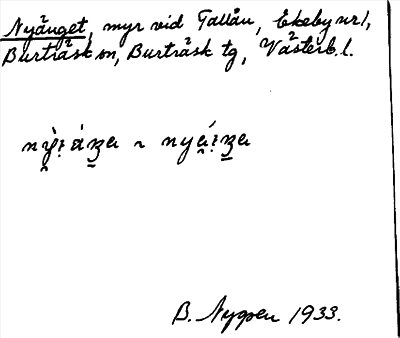 Nyänget, myr vid Tallån, Ekeby nr 1,
Burträsk sn, Burträsk tg, Västerb. l.
B. Nygren 1933.